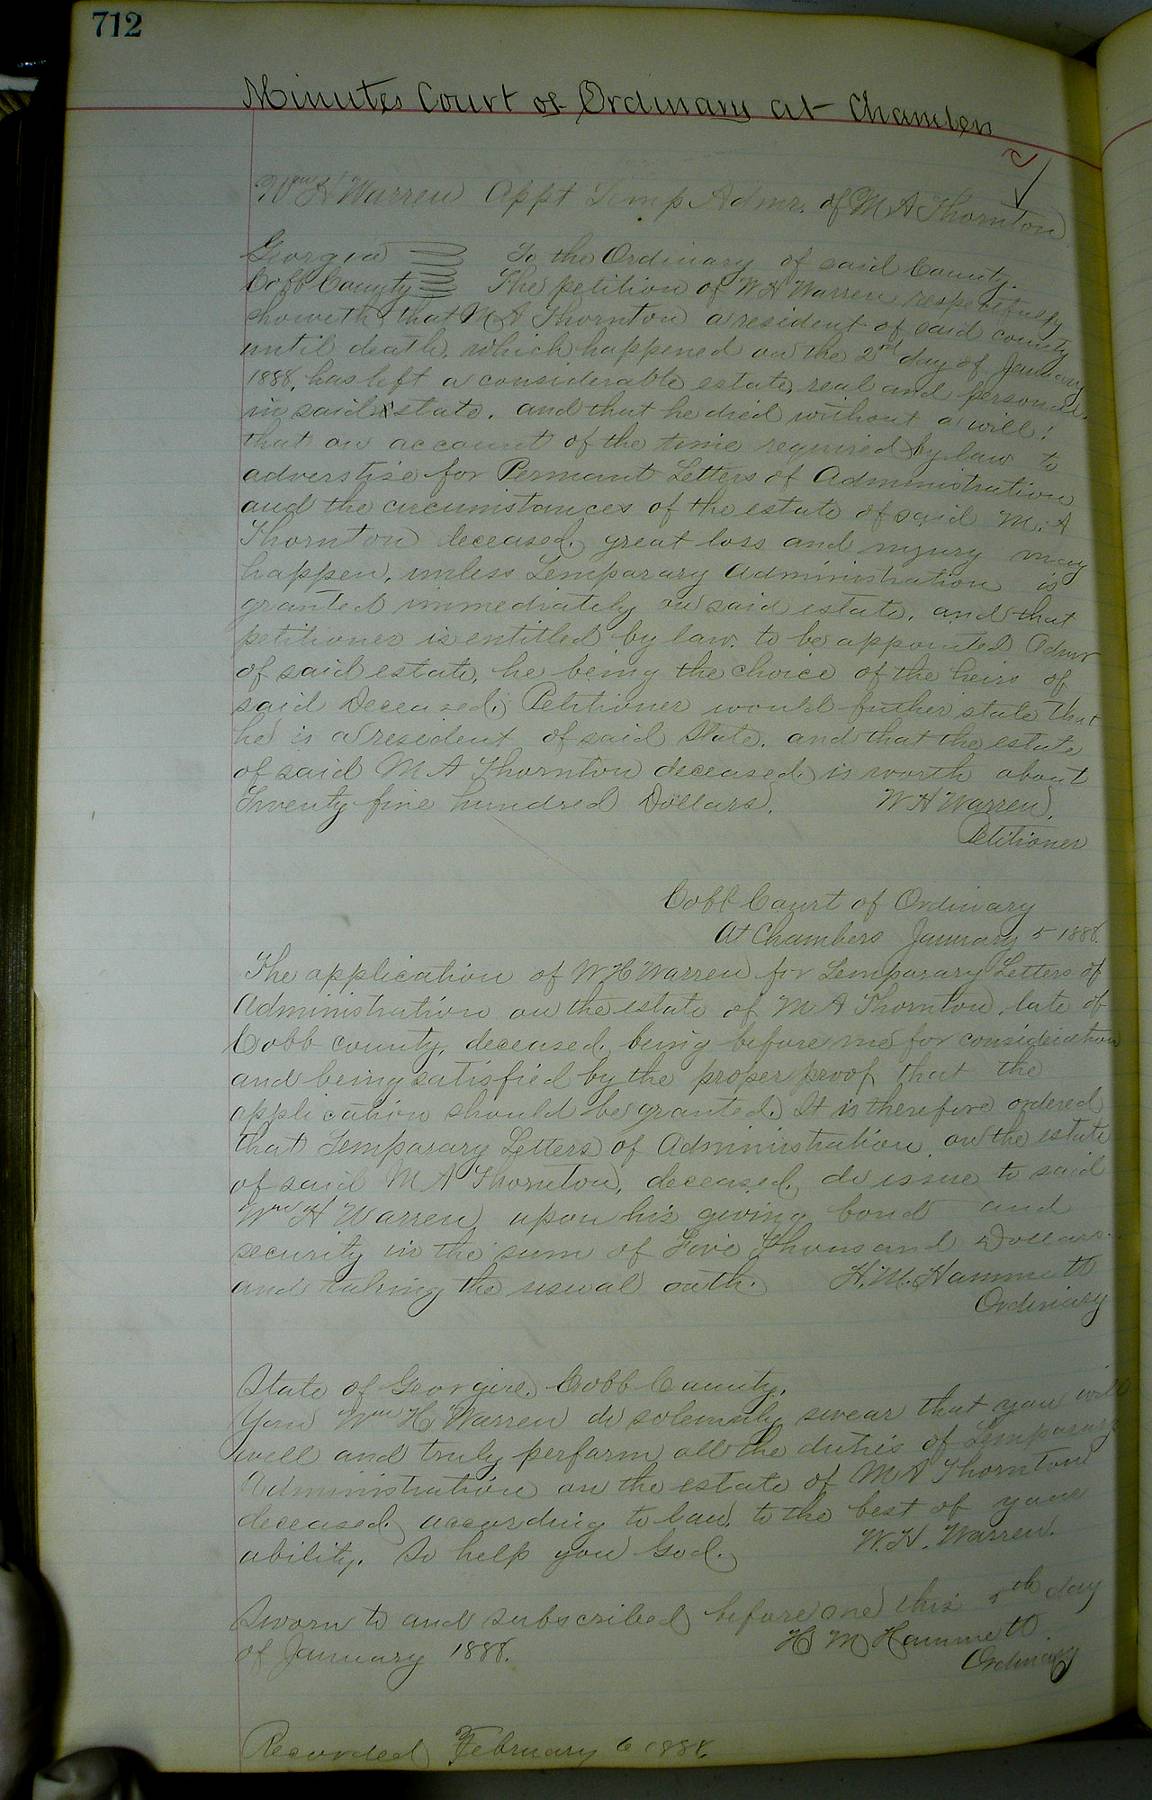 712
Minutes Court of Ordinary at Chamben
Wm H Warren Appt Temp Admr. of M A Thornton
Georgia To the Ordinary of said County.
Cobb County The petition of W H Warren respectfully
showeth, that M A Thornton a resident of said county
until death, which happened on the 2nd day of January
1888, has left a considerable estate, real and personal,
in said state, and that he died without a will;
that on account of the time required by law to
adverstise for Permant Letters of Administration
and the circumstances of the estate of said M. A
Thornton deceased, great loss and injury may
happen, unless Temparary Administration is
granted immediately on said estate, and that
petitioner is entitled by law, to be appointed Admr
of said estate, he being the choice of the heirs of
said deceased; Petitioner would futher state that
he is a resident of said State, and that the estate
of said M A Thornton deceased is worth about
Twenty five hundred Dollars. W H Warren,
Petitioner
Cobb Court of Ordinary
At Chambers January 5 1888.
The application of W H Warren for Temparary Letters of
Administration on the estate of M A Thornton, late of
Cobb county, deceased, being before me for consideration
and being satisfied by the proper proof that the
application should be granted. It is therefore ordered
that Temparary Letters of Administration on the estate
of said M A Thornton, deceased, do issue to said
Wm H Warren upon his giving bond and
security in the sum of Five Thousand Dollars.
and taking the usual oath. H. M. Hammett
Ordinary
State of Georgia, Cobb County,
You Wm H Warren do solemnly swear that you will
well and truly perfarm all the duties of Temparary
Administration on the estate of M A Thornton
deceased, according to law, to the best of your
ability. So help you God. W. H. Warren.
Sworn to and subscribed before me this 5th day
of January 1888. H M Hammett
Ordinary
Recorded February 6 1888